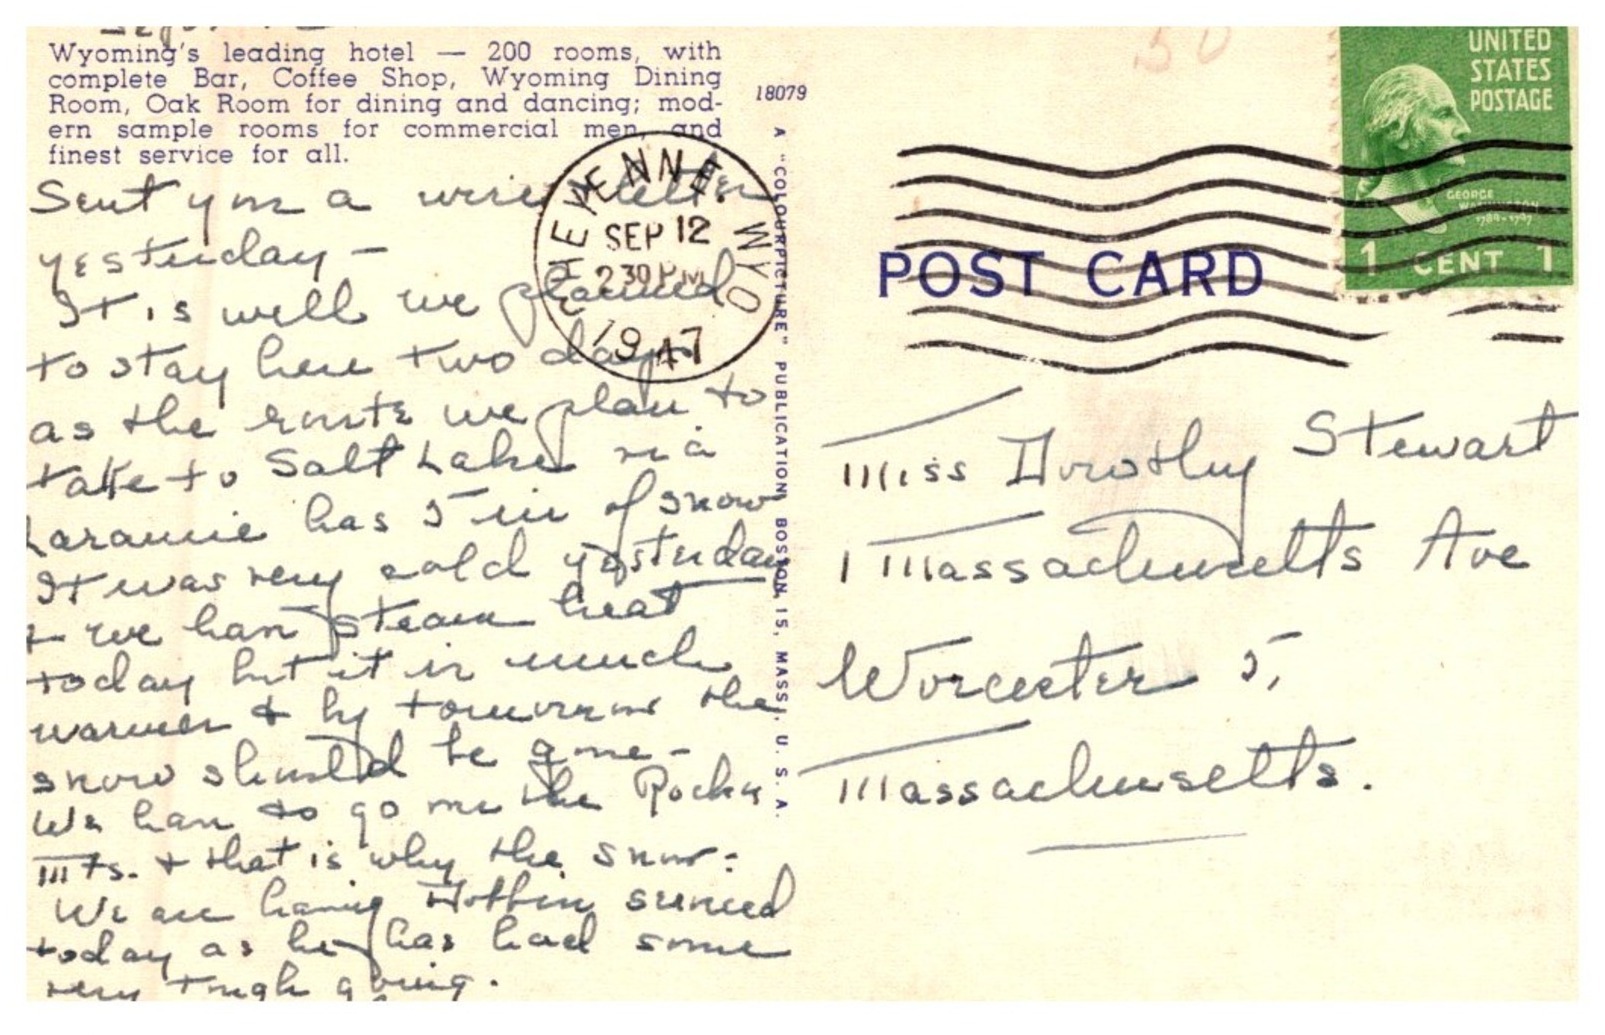 Wyoming's leading hotel — 200 rooms, with
complete Bar, Coffee Shop, Wyoming Dining
Room, Oak Room for dining and dancing; mod-
ern sample rooms for commercial men, and
finest service for all.
Sent you a wire letter
yesterday —
It is well we planned
to stay here two days
as the route we plan to
take to Salt Lake via
Laramie has 5 in of snow
It was very cold yesterday
& we have steam heat
today but it is much
warmer & by tomorrow the
snow should be gone —
We have to go over the Rocky
Mts. & that is why the snow.
We are having serviced
today as he has had some
very tough going.
18079
A "COLOURPICTURE" PUBLICATION, BOSTON 15, MASS., U. S. A.
CHEYENNE WYO
SEP 12
2 30 PM
1947
50
UNITED
STATES
POSTAGE
GEORGE
WASHINGTON
1789-1797
1 CENT 1
POST CARD
Miss Dorothy Stewart
1 Massachusetts Ave
Worcester 5,
Massachusetts.